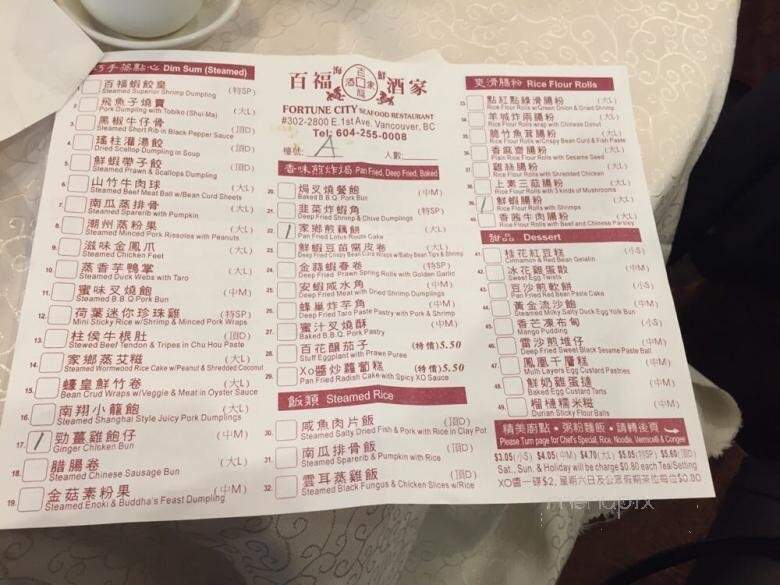 手蒸點心 Dim Sum (Steamed)
1. 百福蝦餃皇 (特SP)
Steamed Superior Shrimp Dumpling
2. 飛魚子燒賣 (大L)
Pork Dumpling with Tobiko (Shui Ma)
3. 黑椒牛仔骨 (頂D)
Steamed Short Rib in Black Pepper Sauce
4. 瑤柱灌湯餃 (頂D)
Dried Scallop Dumpling in Soup
5. 鮮蝦帶子餃 (頂D)
Steamed Prawn & Scallops Dumpling
6. 山竹牛肉球 (大L)
Steamed Beef Meat Ball w/Bean Curd Sheets
7. 南瓜蒸排骨 (大L)
Steamed Sparerib with Pumpkin
8. 潮州蒸粉果 (大L)
Steamed Minced Pork Rissoles with Peanuts
9. 滋味金鳳爪 (大L)
Steamed Chicken Feet
10. 蒸香芋鴨掌 (大L)
Steamed Duck Webs with Taro
11. 蜜味叉燒飽 (中M)
Steamed B.B.Q Pork Bun
12. 荷葉迷你珍珠雞 (特SP)
Mini Sticky Rice w/Shrimp & Minced Pork Wraps
13. 柱侯牛根肚 (頂D)
Stewed Beef Tendon & Tripes in Chu Hou Paste
14. 家鄉蒸艾糍 (大L)
Steamed Wormwood Rice Cake w/Peanut & Shredded Coconut
15. 蠔皇鮮竹卷 (大L)
Bean Crud Wraps w/Veggie & Meat in Oyster Sauce
16. 南翔小籠飽 (大L)
Steamed Shanghai Style Juicy Pork Dumplings
17. 勁薑雞飽仔 (中M)
Ginger Chicken Bun
18. 腊腸卷 (大L)
Steamed Chinese Sausage Bun
19. 金菇素粉果 (中M)
Steamed Enoki & Buddha's Feast Dumpling
百福海鮮酒家
FORTUNE CITY SEAFOOD RESTAURANT
#302-2800 E.1st Ave. Vancouver, BC
Tel: 604-255-0008
檯號: A 人數:
香味煎炸焗 Pan Fried, Deep Fried, Baked
20. 焗叉燒餐飽 (中M)
Baked B.B.Q Pork Bun
21. 韮菜炸蝦角 (特SP)
Deep Fried Shrimp & Chive Dumplings
22. 家鄉煎藕餅 (大L)
Pan Fried Lotus Roots Cake
23. 鮮蝦豆苗腐皮卷 (大L)
Deep Fried Crispy Bean Curd Wraps w/Baby Bean Tips & Shrimp
24. 金蒜蝦春卷 (特SP)
Deep Fried Prawn Spring Rolls with Golden Garlic
25. 安蝦咸水角 (中M)
Deep Fried Meat with Dried Shrimp Dumplings
26. 蜂巢炸芋角 (中M)
Deep Fried Taro Paste Pastry with Pork & Shrimp
27. 蜜汁叉燒酥 (中M)
Baked B.B.Q. Pork Pastry
28. 百花釀茄子 (特價)5.50
Stuff Eggplant with Prawn Puree
29. Xo醬炒蘿蔔糕 (特價)5.50
Pan Fried Radish Cake with Spicy XO Sauce
飯類 Steamed Rice
30. 咸魚肉片飯 (頂D)
Steamed Salty Dried Fish & Pork with Rice in Clay Pot
31. 南瓜排骨飯 (頂D)
Steamed Sparerib & Pumpkin with Rice
32. 雲耳蒸雞飯 (頂D)
Steamed Black Fungus & Chicken Slices w/Rice
爽滑腸粉 Rice Flour Rolls
33. 點紅點綠滑腸粉 (大L)
Rice Flour Rolls w/Green Onion & Dried Shrimp
34. 羊城炸兩腸粉 (大L)
Rice Flour Rolls wrap with Chinese Donut
35. 脆竹魚茸腸粉 (大L)
Rice Flour Rolls w/Crispy Bean Curd & Fish Paste
36. 香麻齋腸粉 (大L)
Plain Rice Flour Rolls with Sesame Seed
37. 雞絲腸粉 (大L)
Rice Flour Rolls with Shredded Chicken
38. 上素三菇腸粉 (大L)
Rice Flour Rolls with 3 kinds of Mushrooms
39. 鮮蝦腸粉 (大L)
Rice Flour Rolls with Shrimps
40. 香茜牛肉腸粉 (大L)
Rice Flour Rolls with Beef and Chinese Parsley
甜品 Dessert
41. 桂花紅豆糕 (小S)
Cinnamon & Red Bean Gelatin
42. 冰花雞蛋散 (中M)
Sweet Egg Twists
43. 豆沙煎軟餅 (小S)
Pan Fried Red Bean Paste Cake
44. 黃金流沙飽 (中M)
Steamed Milky Salty Duck Egg Yolk Bun
45. 香芒凍布甸 (小S)
Mango Pudding
46. 雷沙煎堆仔 (中M)
Deep Fried Sweet Black Sesame Paste Ball
47. 鳳凰千層糕 (中M)
Multi Layers Egg Custard Pastries
48. 鮮奶雞蛋撻 (中M)
Baked Egg Custard Tarts
49. 榴槤糯米糍 (中M)
Durian Sticky Flour Balls
精美廚點・粥粉麵飯・請轉後頁
Please Turn page for Chef's Special, Rice, Noodle, Vermicelli & Congee
$3.05(小S) $4.05(中M) $4.70(大L) $5.05(特SP) $5.65(頂D)
Sat., Sun., & Holiday will be charge $0.80 each Tea/Setting
XO醬一碟$2, 星期六日及公眾假期茶位每位$0.80
menupix